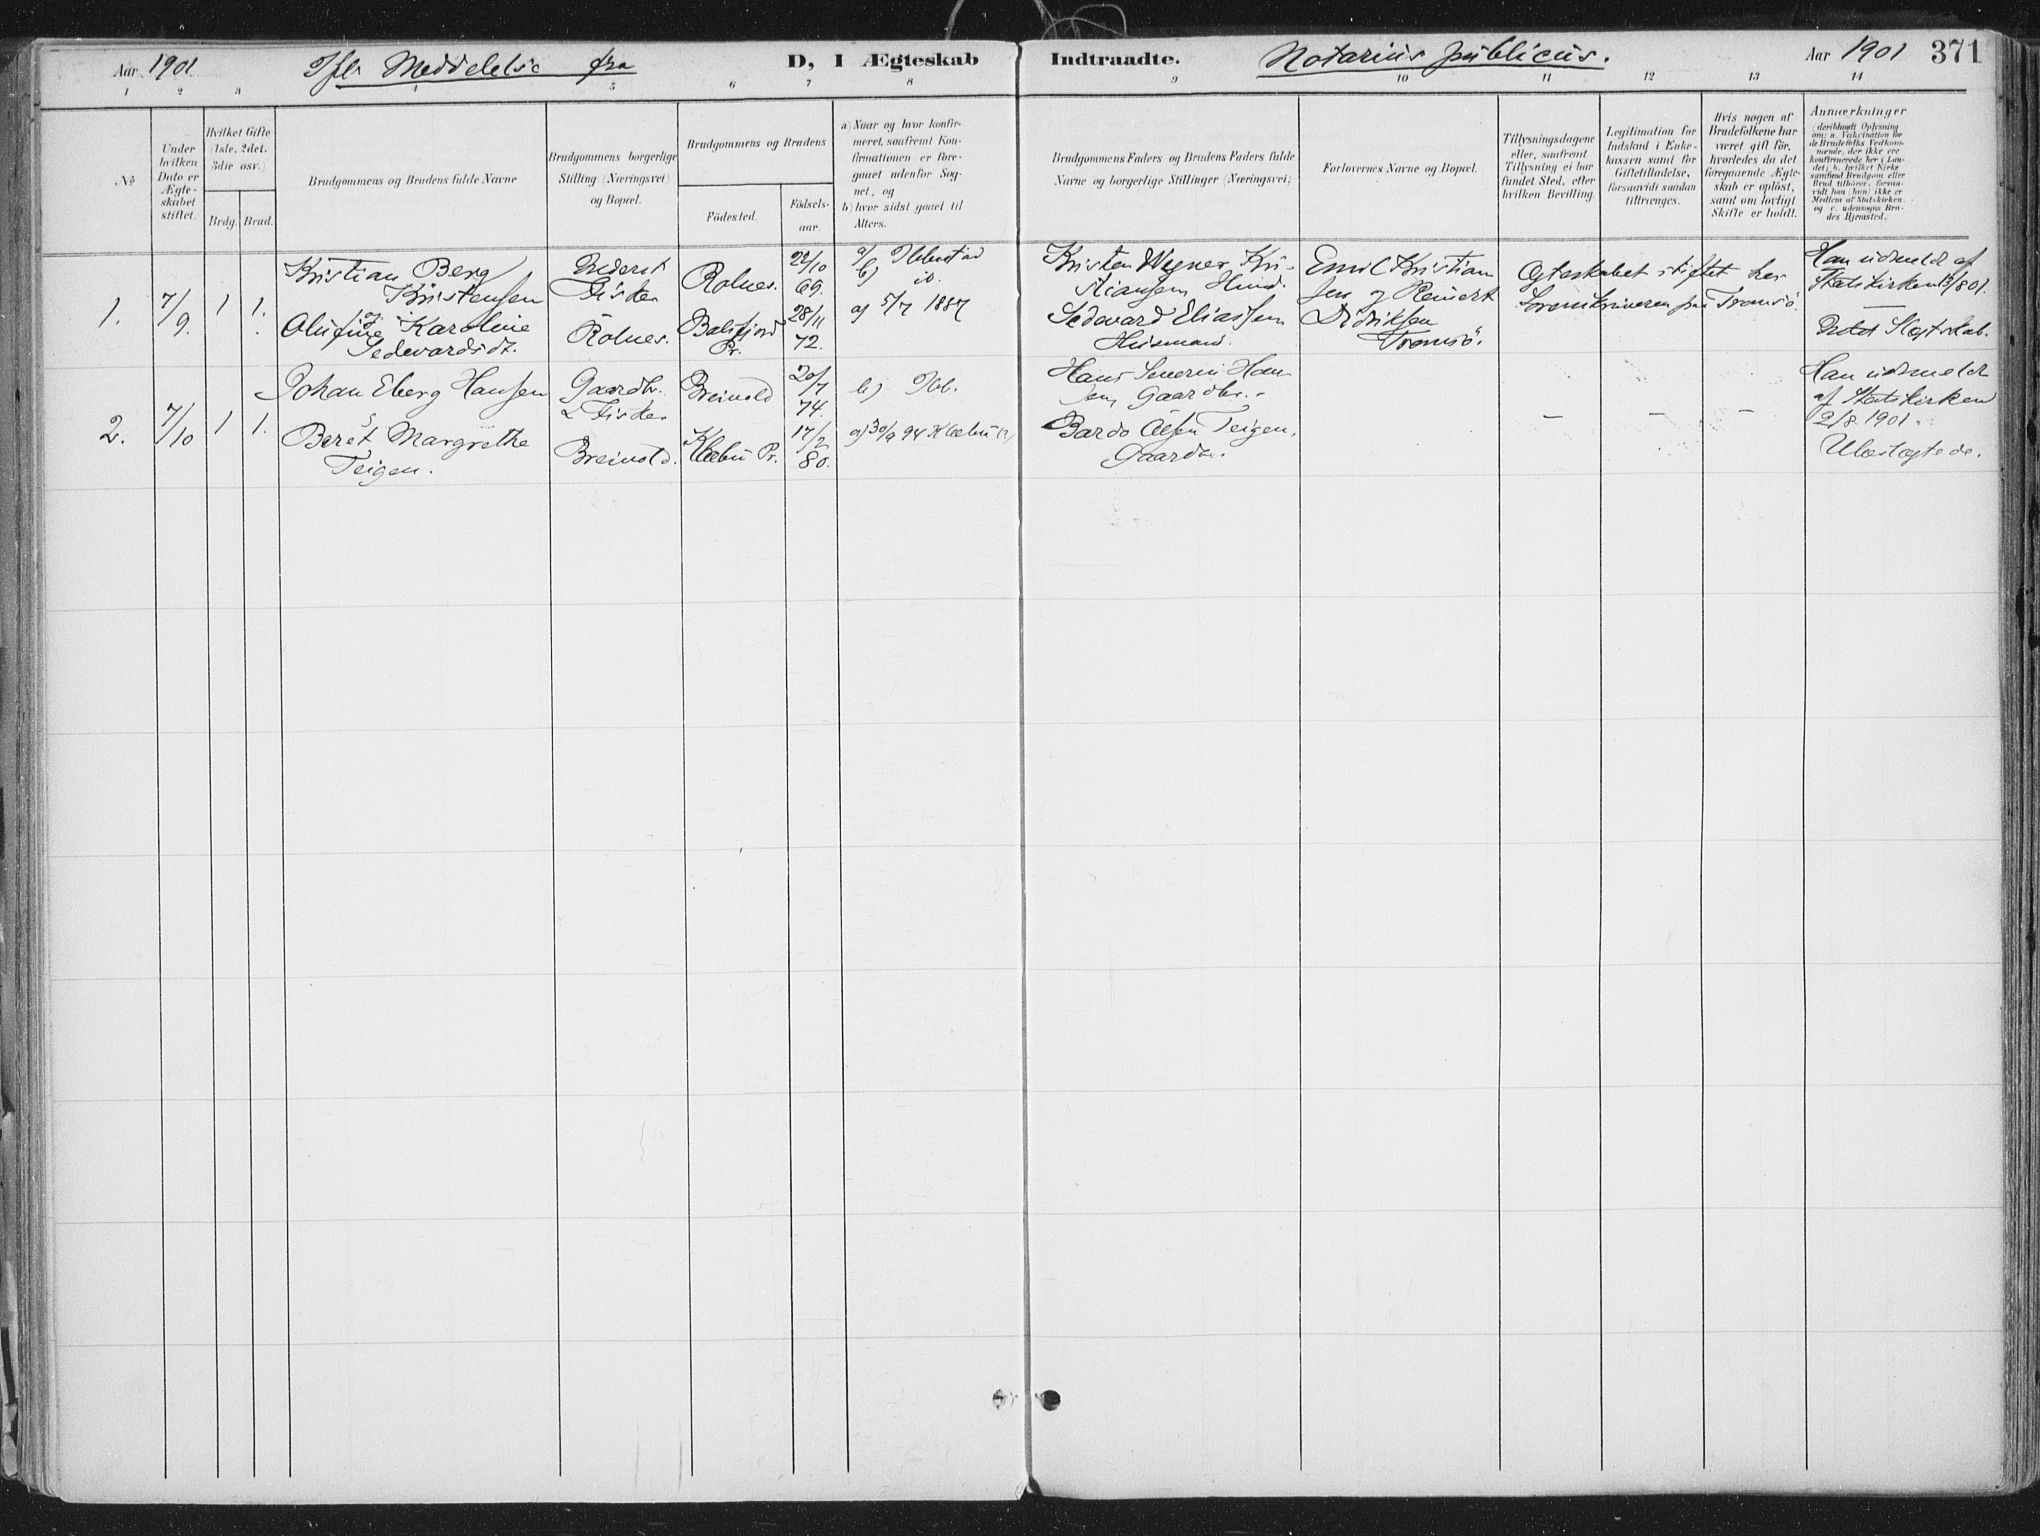 Aar 1901 Ifl. Meddelelse fra D, I Ægteskab Indtraadte. Notarius publicus. Aar 1901 371
1 2 3 4 5 6 7 8 9 10 11 12 13 14
№
Under hvilken Dato er Ægte-
skabet stiftet.
Hvilket Gifte
(1ste, 2det,
3die osv.)
Brdg. Brud.
Brudgommens og Brudens fulde Navne
Brudgommens borgerlige
Stilling (Næringsvei)
og Bopæl.
Brudgommens og Brudens
Fødested.
Fødsels-
aar.
a) Naar og hvor konfir-
meret, saafremt Kon-
firmationen er fore-
gaaet udenfor Sog-
net, og
b) hvor sidst gaaet til
Alters.
Brudgommens Faders og Brudens Faders fulde
Navne og borgerlige Stillinger (Næringsvei)
Forlovernes Navne og Bopæl.
Tillysningsdagene
eller, saafremt
Tillysning ei har
fundet Sted, efter
hvilken Bevilling.
Legitimation for
Indskud i Enke-
kassen samt for
Giftetilladelse,
forsaavidt saadan
tiltrænges.
Hvis nogen af
Brudefolkene har
været gift før,
hvorledes da det
foregaaende Ægte-
skab er opløst,
samt om lovligt
Skifte er holdt.
Anmærkninger
(deriblandt Oplysning
om: a. Vakcination for
de Brudefolks Vedkom-
mende, der ikke ere
konfirmerede her i Lan-
det; b. hvilket Kirke
samfund Brudgom eller
Brud tilhører, forsaa-
vidt han (hun) ikke er
Medlem af Statskirken,
og c. udensogns Bru-
des Hjemsted.)
1. 7/9 1 1.
Kristian Berg
Kristensen
og
Olufine Karoline
Sedevardsdt.
Fisker
Rolnes.
Rolnes.
Balsfjord
Pr.
22/10
69.
28/11
72.
a/ Ibbestad
b) ib.
a) 5/7 1887
Kristen Wegner Kri-
stiansen Husmd.
Sedevard Eliassen
Husmand.
Emil Kristian
sen og Reinert
Didriksen
Tromsö.
Ægteskabet stiftet hos
Sorenskriveren fra Tromsö
Han udmeldt af
Statskirken 13/8 01.
Intet Slægtskab.
2. 7/10 1 1.
Johan Eberg Hansen
&
Beret Margrethe
Teigen.
Gaardbr.
& Fisker
Breivold.
Breivold
Klæbu Pr.
20/7
74.
17/2
80.
b) Ibb.
a) 30/9 94 Klæbu
Hans Severin Han
sen Gaardbr.
Bardo Olsen Teigen,
Gaardbr.
— — —
Han udmeldt
af Statskirken
2/8 1901.
Ubeslægtede.